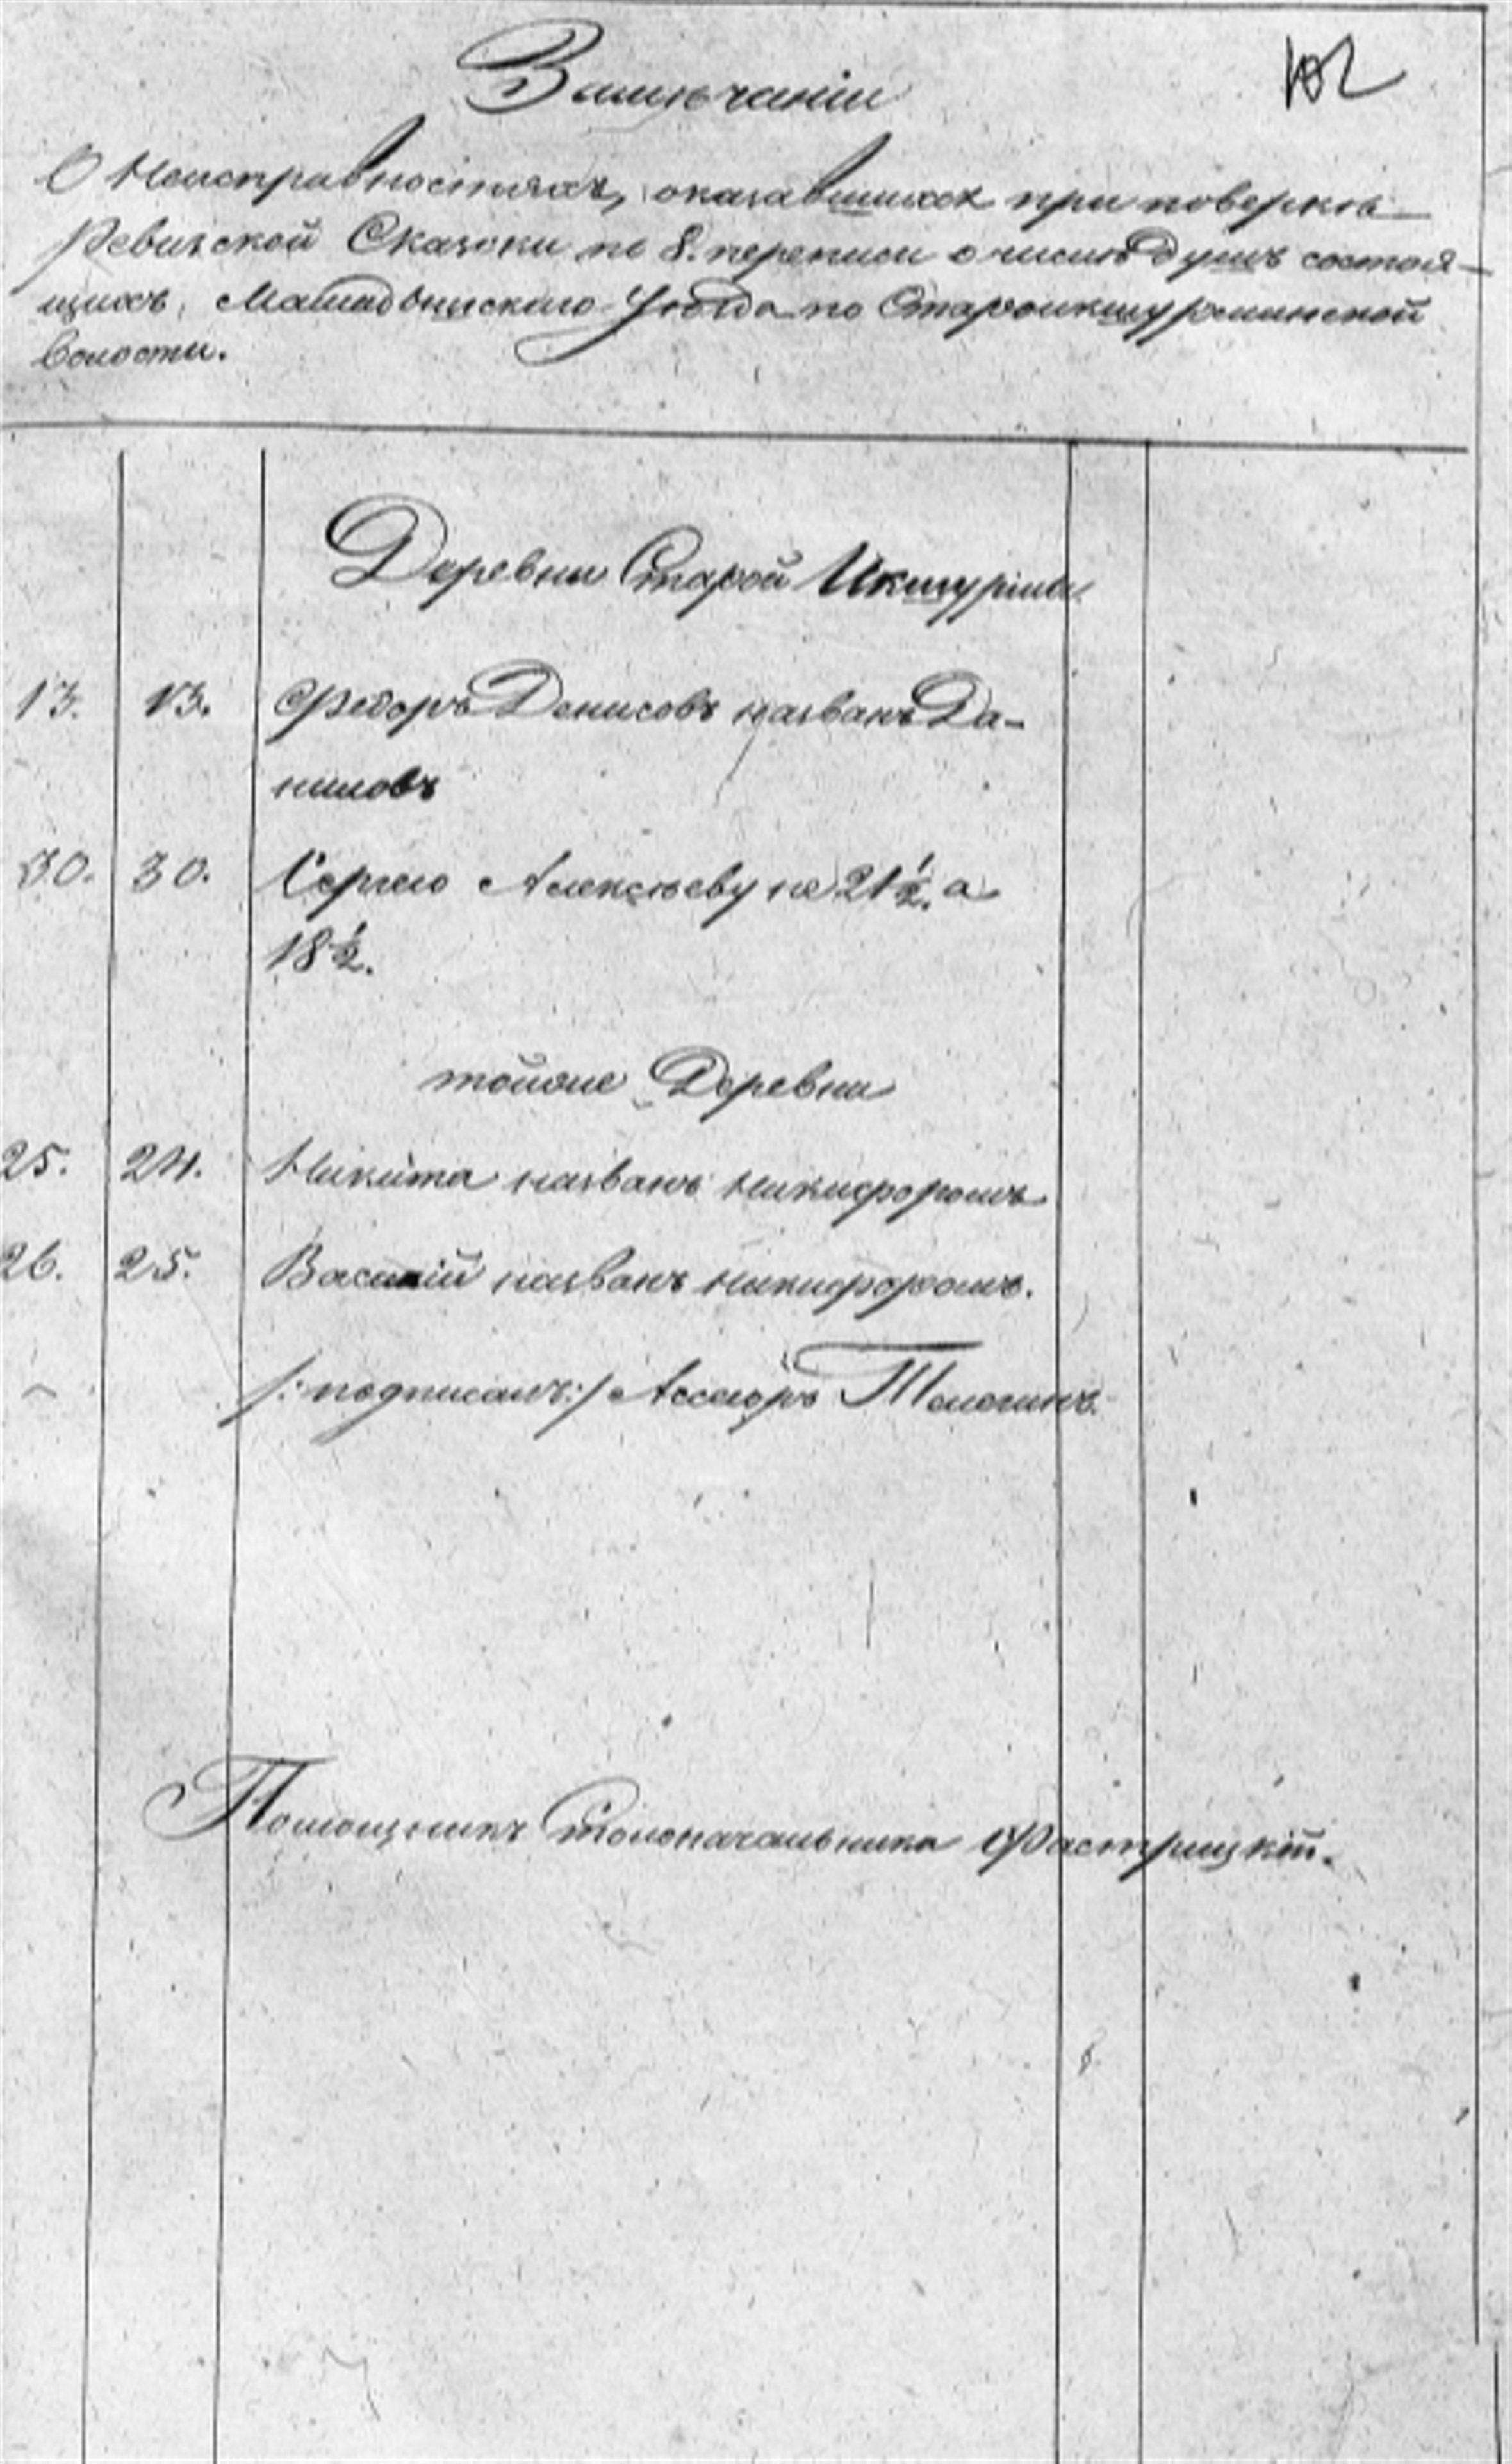 Замѣчанiи
102
О Неисправностяхъ, оказавшихся при поверкѣ
Ревизской Сказки по 8. переписи о числѣ душъ состоя-
щихъ, Мамадышскаго Уѣзда по Староикшурминской
Волости.
Деревни Старой Икшурмы
13. 13. Федоръ Денисовъ названъ Да-
ниловъ
30. 30. Сергею Алексѣеву не 21 1/2. а
18 1/2.
тойже Деревни
25. 24. Никита названъ Никифоромъ
26. 25. Василiй названъ Никифоромъ.
/: подписалъ:/ Ассесоръ
Помощникъ Столоначальника